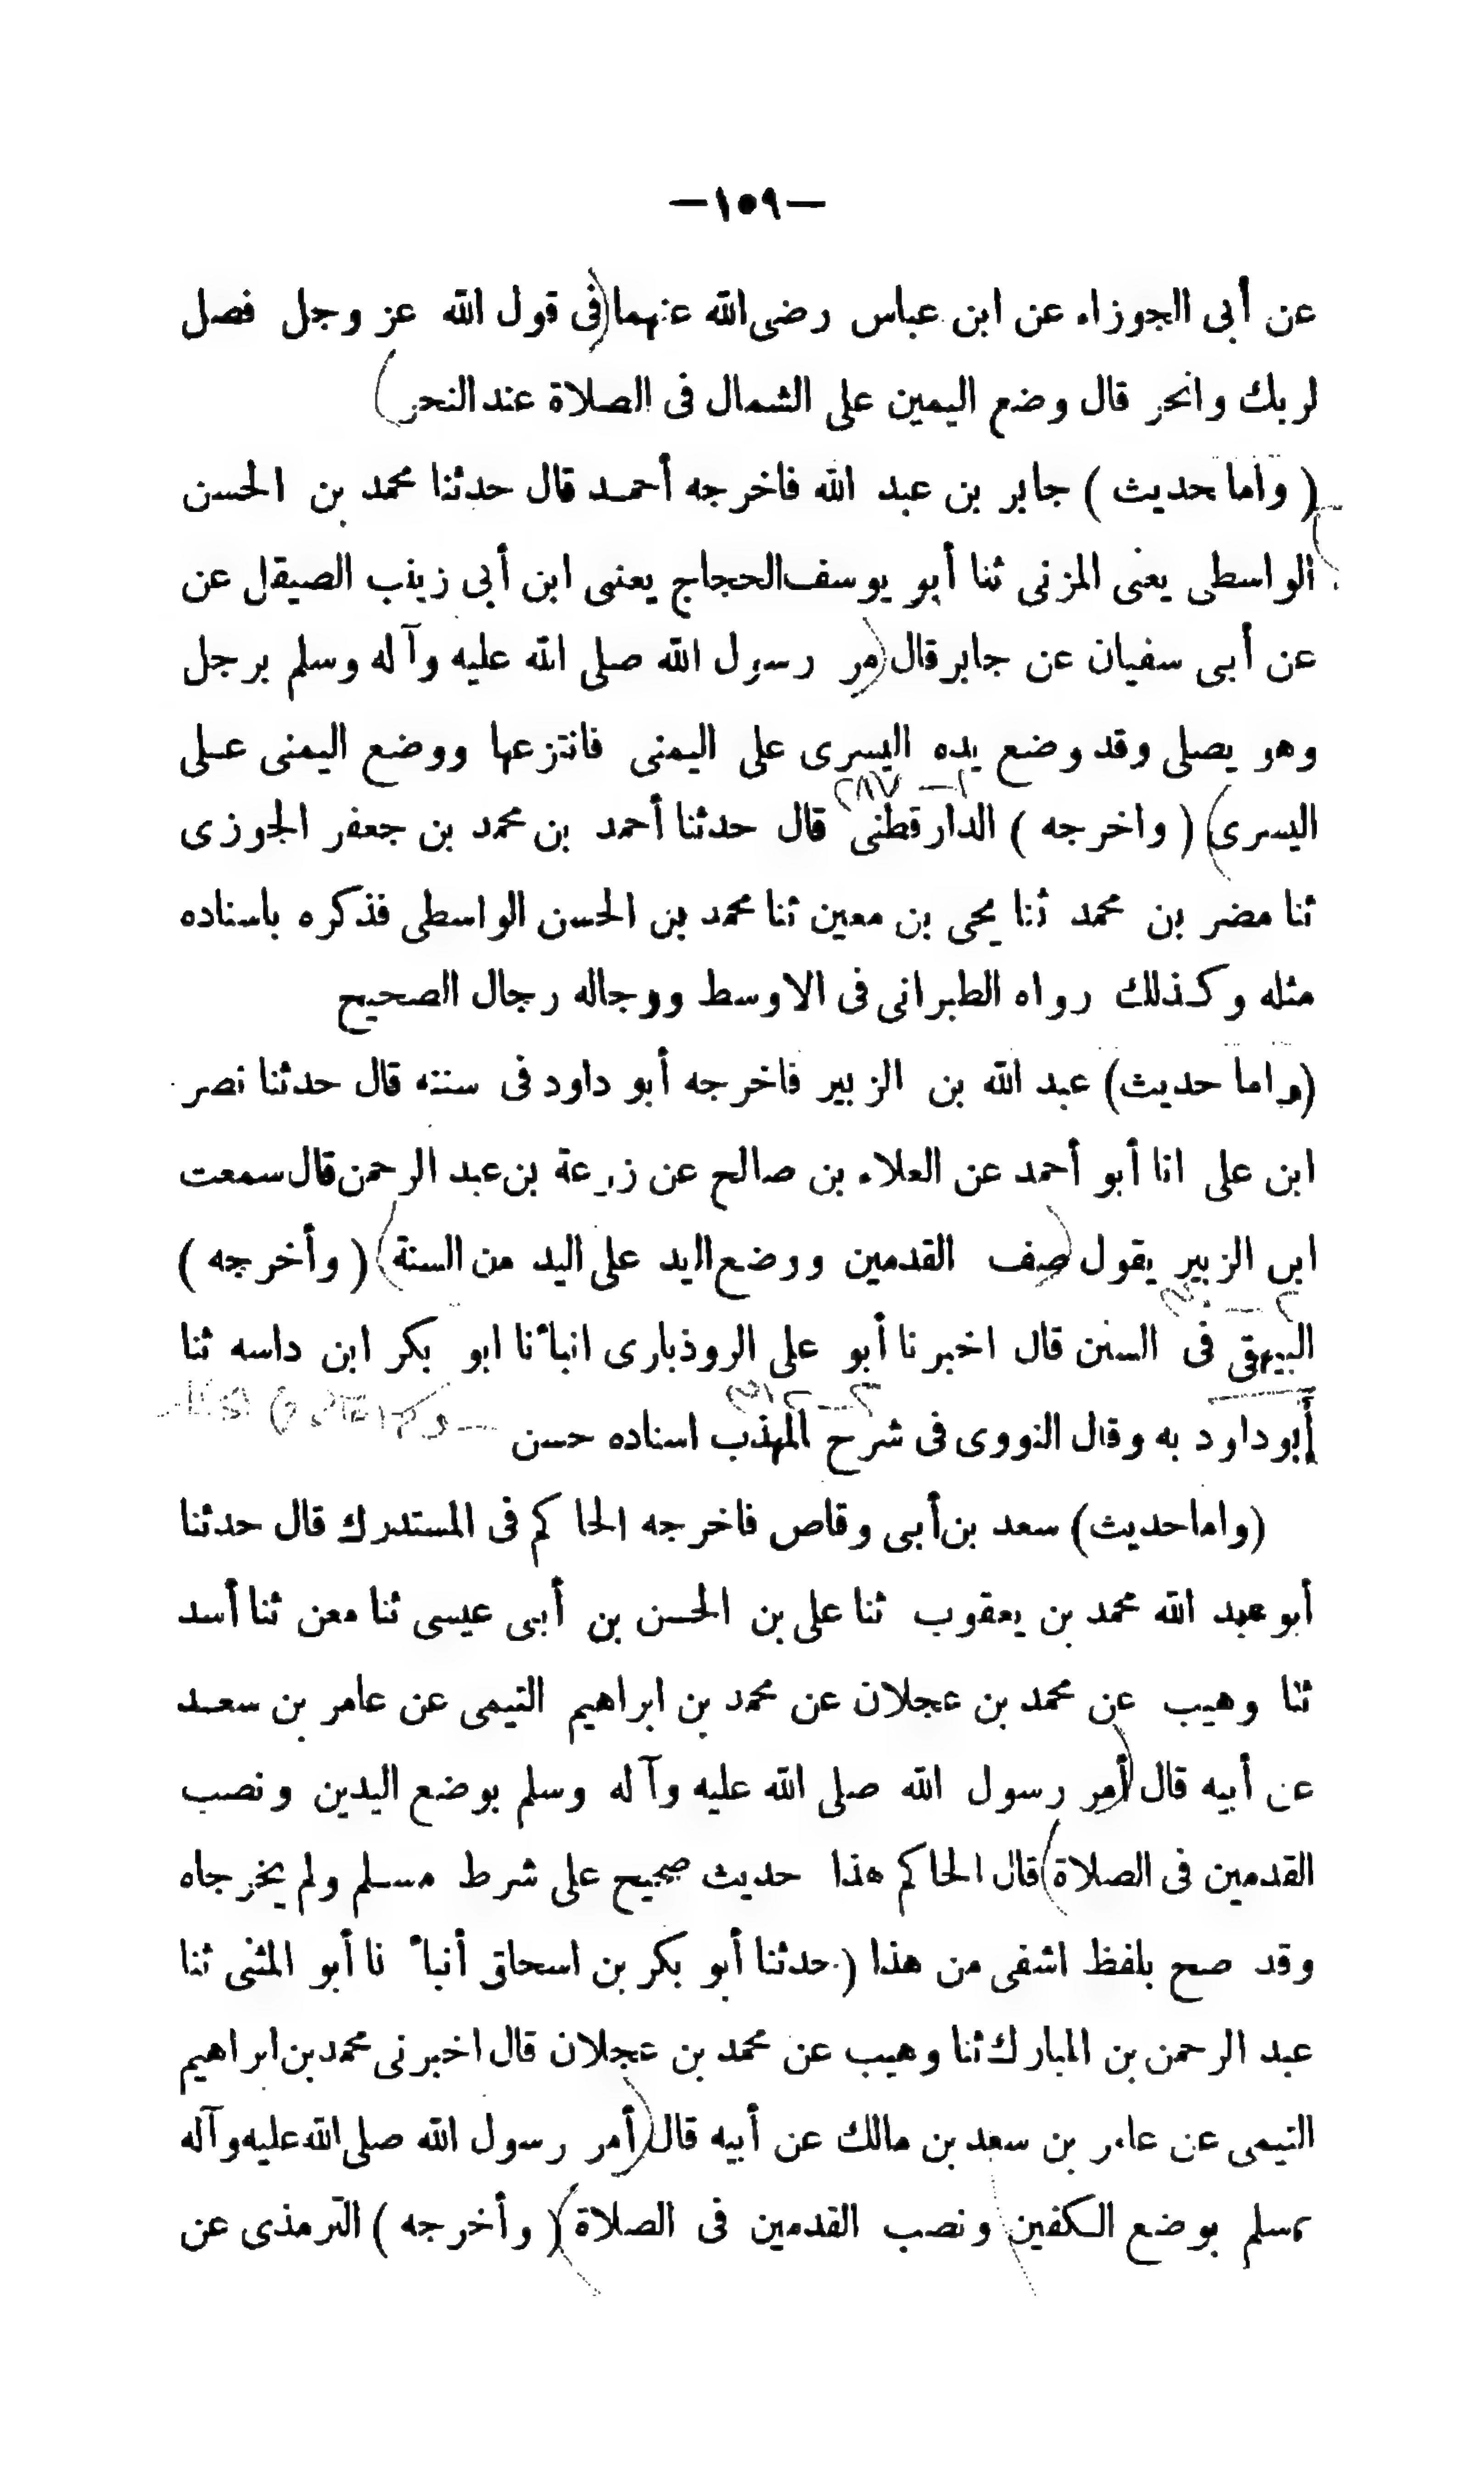 —١٥٩—
عن أبى الجوزاء عن ابن عباس رضى الله عنهما (فى قول الله عز وجل فصل
لربك وانحر قال وضع اليمين على الشمال فى الصلاة عند النحر)
( واما حديث ) جابر بن عبد الله فاخرجه أحمد قال حدثنا محمد بن الحسن
الواسطى يعنى المزنى ثنا أبو يوسف الحجاج يعنى ابن أبى زينب الصيقل عن
عن أبى سفيان عن جابر قال (مر رسول الله صلى الله عليه وآله وسلم برجل
وهو يصلى وقد وضع يده اليسرى على اليمنى فانتزعها ووضع اليمنى على
اليسرى) ( واخرجه ) الدارقطنى قال حدثنا أحمد بن محمد بن جعفر الجوزى
ثنا مضر بن محمد ثنا يحى بن معين ثنا محمد بن الحسن الواسطى فذكره باسناده
مثله وكذلك رواه الطبرانى فى الاوسط ورجاله رجال الصحيح
(واما حديث) عبد الله بن الزبير فاخرجه أبو داود فى سننه قال حدثنا نصر
ابن على انا أبو أحمد عن العلاء بن صالح عن زرعة بن عبد الرحمن قال سمعت
ابن الزبير يقول (صف القدمين ووضع اليد على اليد من السنة) ( وأخرجه )
البيهقى فى السنن قال اخبرنا أبو على الروذبارى انبأنا ابو بكر ابن داسه ثنا
أبوداود به وقال النووى فى شرح المهذب اسناده حسن
(واما حديث) سعد بن أبى وقاص فاخرجه الحاكم فى المستدرك قال حدثنا
أبو عبد الله محمد بن يعقوب ثنا على بن الحسن بن أبى عيسى ثنا معن ثنا أسد
ثنا وهيب عن محمد بن عجلان عن محمد بن ابراهيم التيمى عن عامر بن سعد
عن أبيه قال (أمر رسول الله صلى الله عليه وآله وسلم بوضع اليدين ونصب
القدمين فى الصلاة) قال الحاكم هذا حديث صحيح على شرط مسلم ولم يخرجاه
وقد صح بلفظ اشفى من هذا (حدثنا أبو بكر بن اسحاق أنبأنا أبو المثنى ثنا
عبد الرحمن بن المبارك ثنا وهيب عن محمد بن عجلان قال اخبرنى محمد بن ابراهيم
التيمى عن عامر بن سعد بن مالك عن أبيه قال (أمر رسول الله صلى الله عليه وآله
وسلم بوضع الكفين ونصب القدمين فى الصلاة) ( وأخرجه ) الترمذى عن